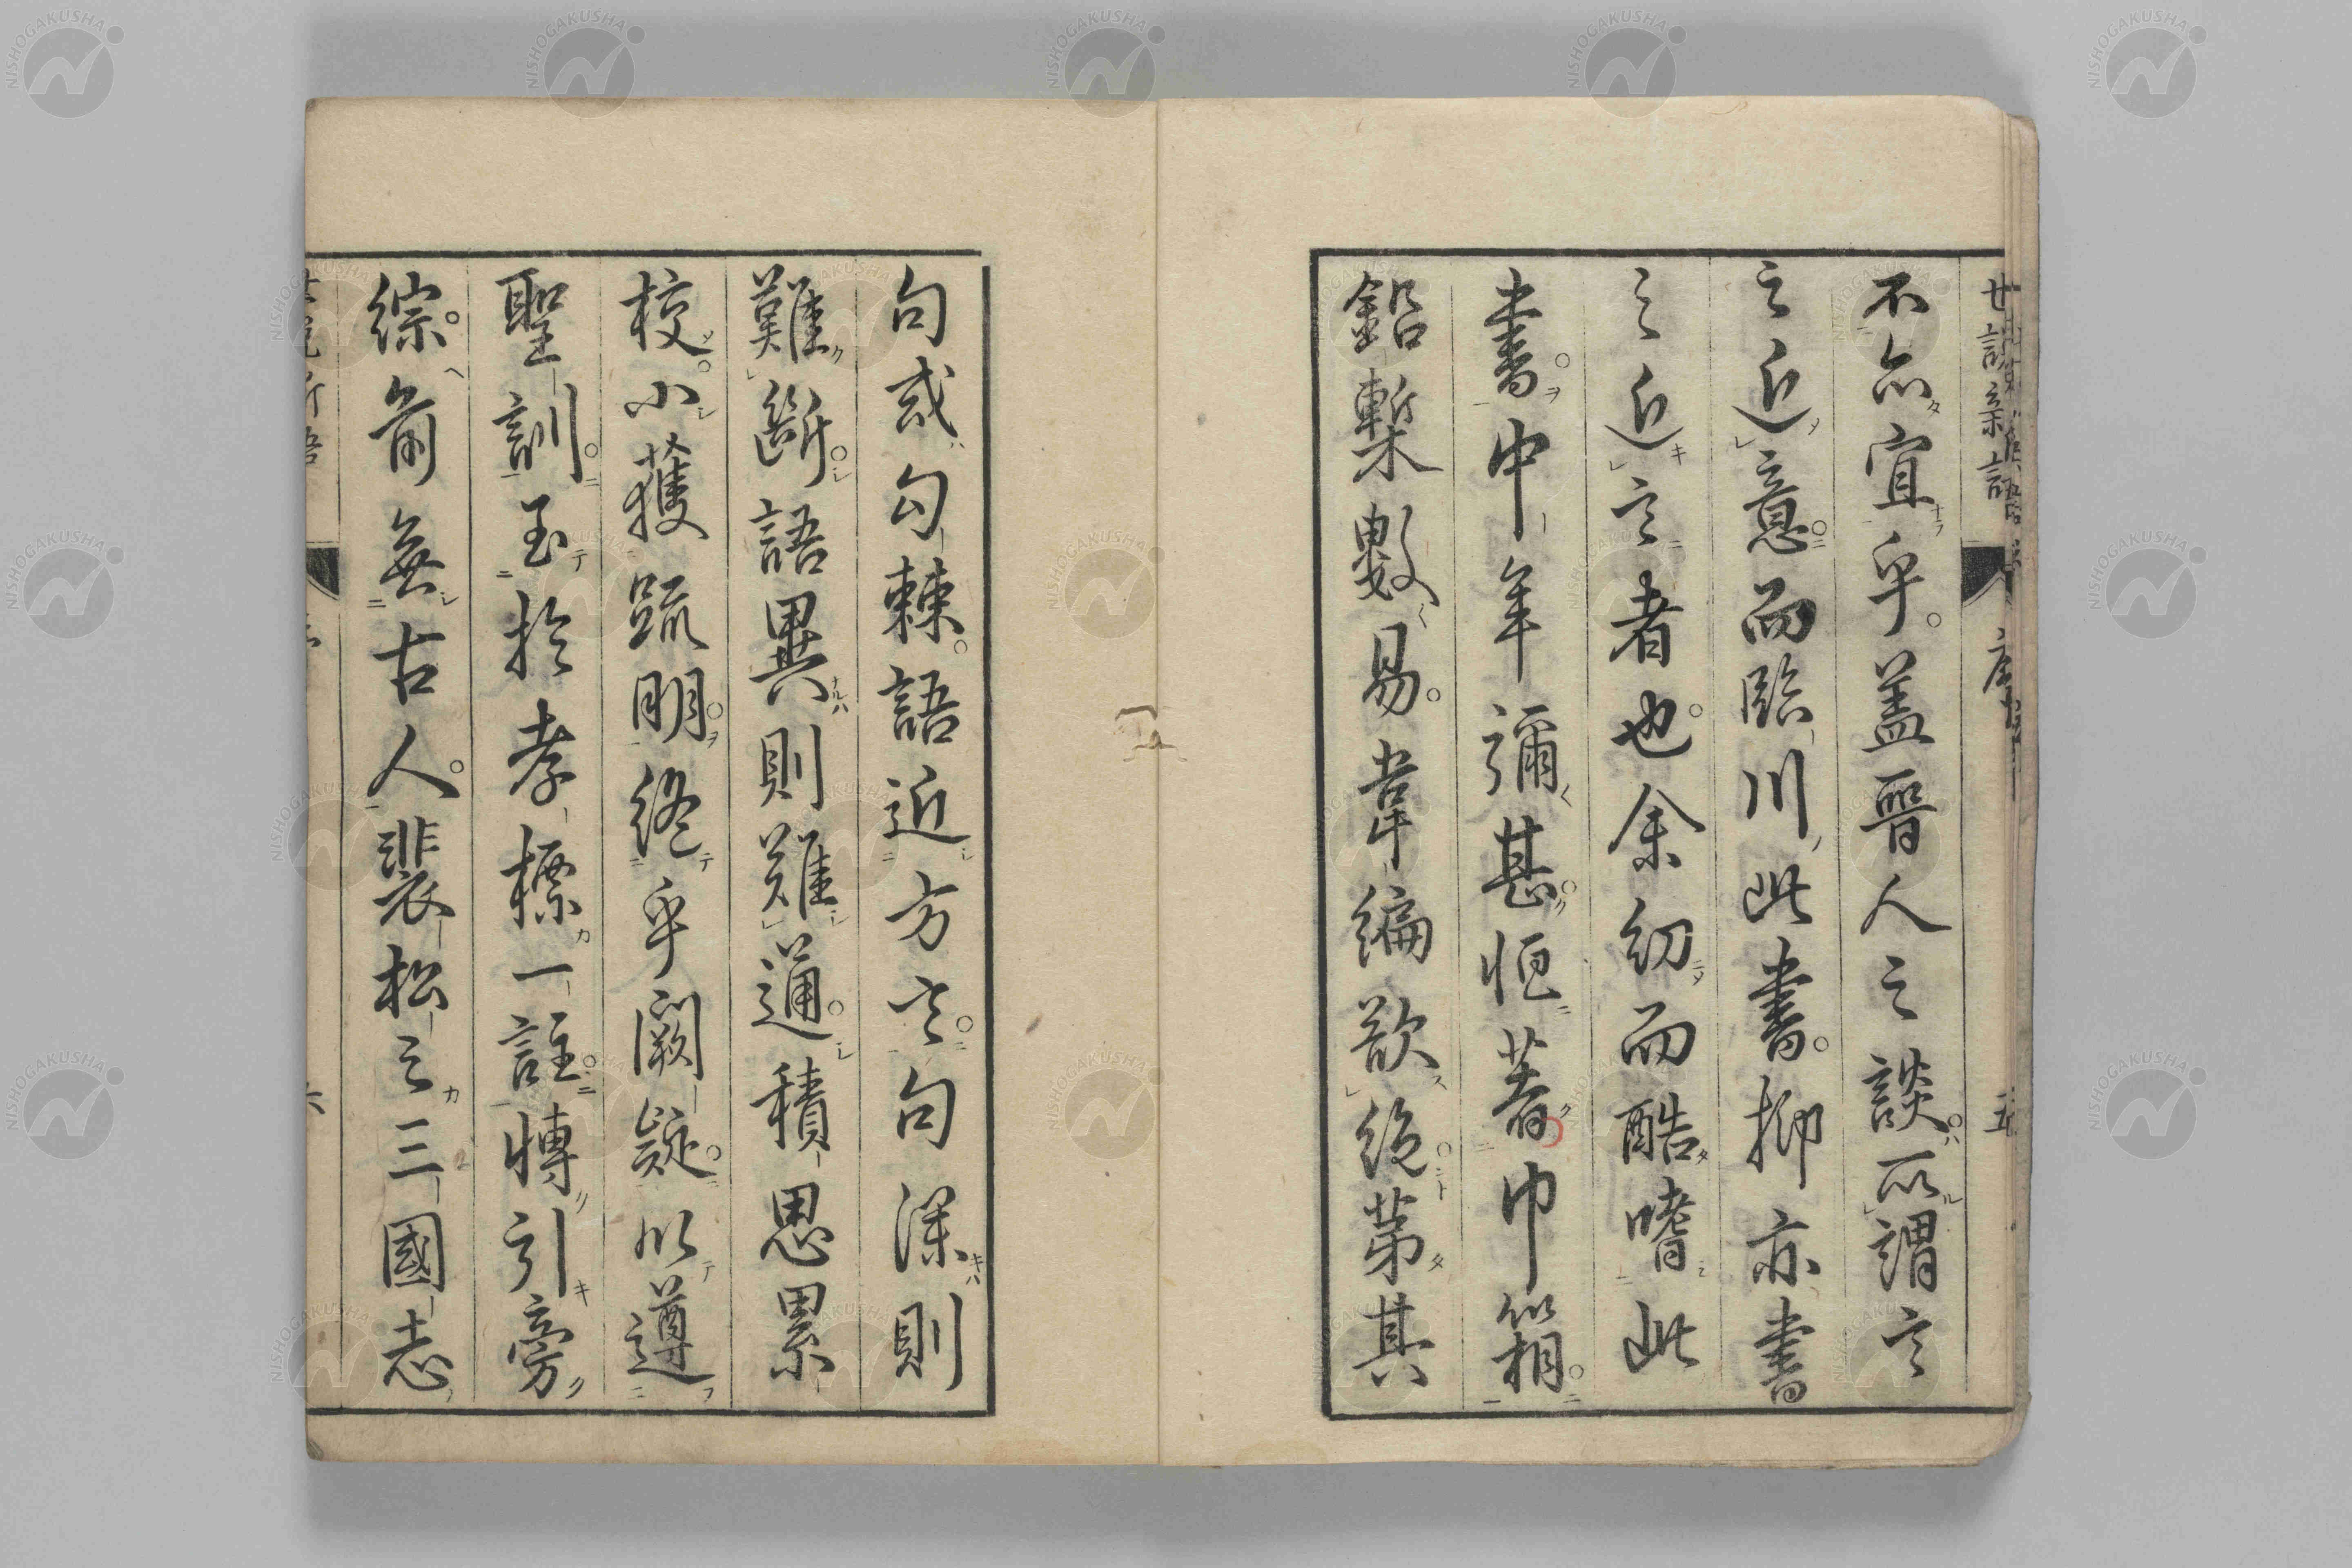 不亦宜乎蓋晉人之談所謂言
之近意而臨川此書抑亦書
之近言者也余幼而酷嗜此
書中年彌甚恒著巾箱
鉛槧數易韋編欲絶第其
句或勾棘語近方言句深則
難斷語異則難通積思累
校小獲疏明終乎闕疑以遵
聖訓至於孝標一註博引旁
綜前無古人裴松之三國志
NISHOGAKUSHA